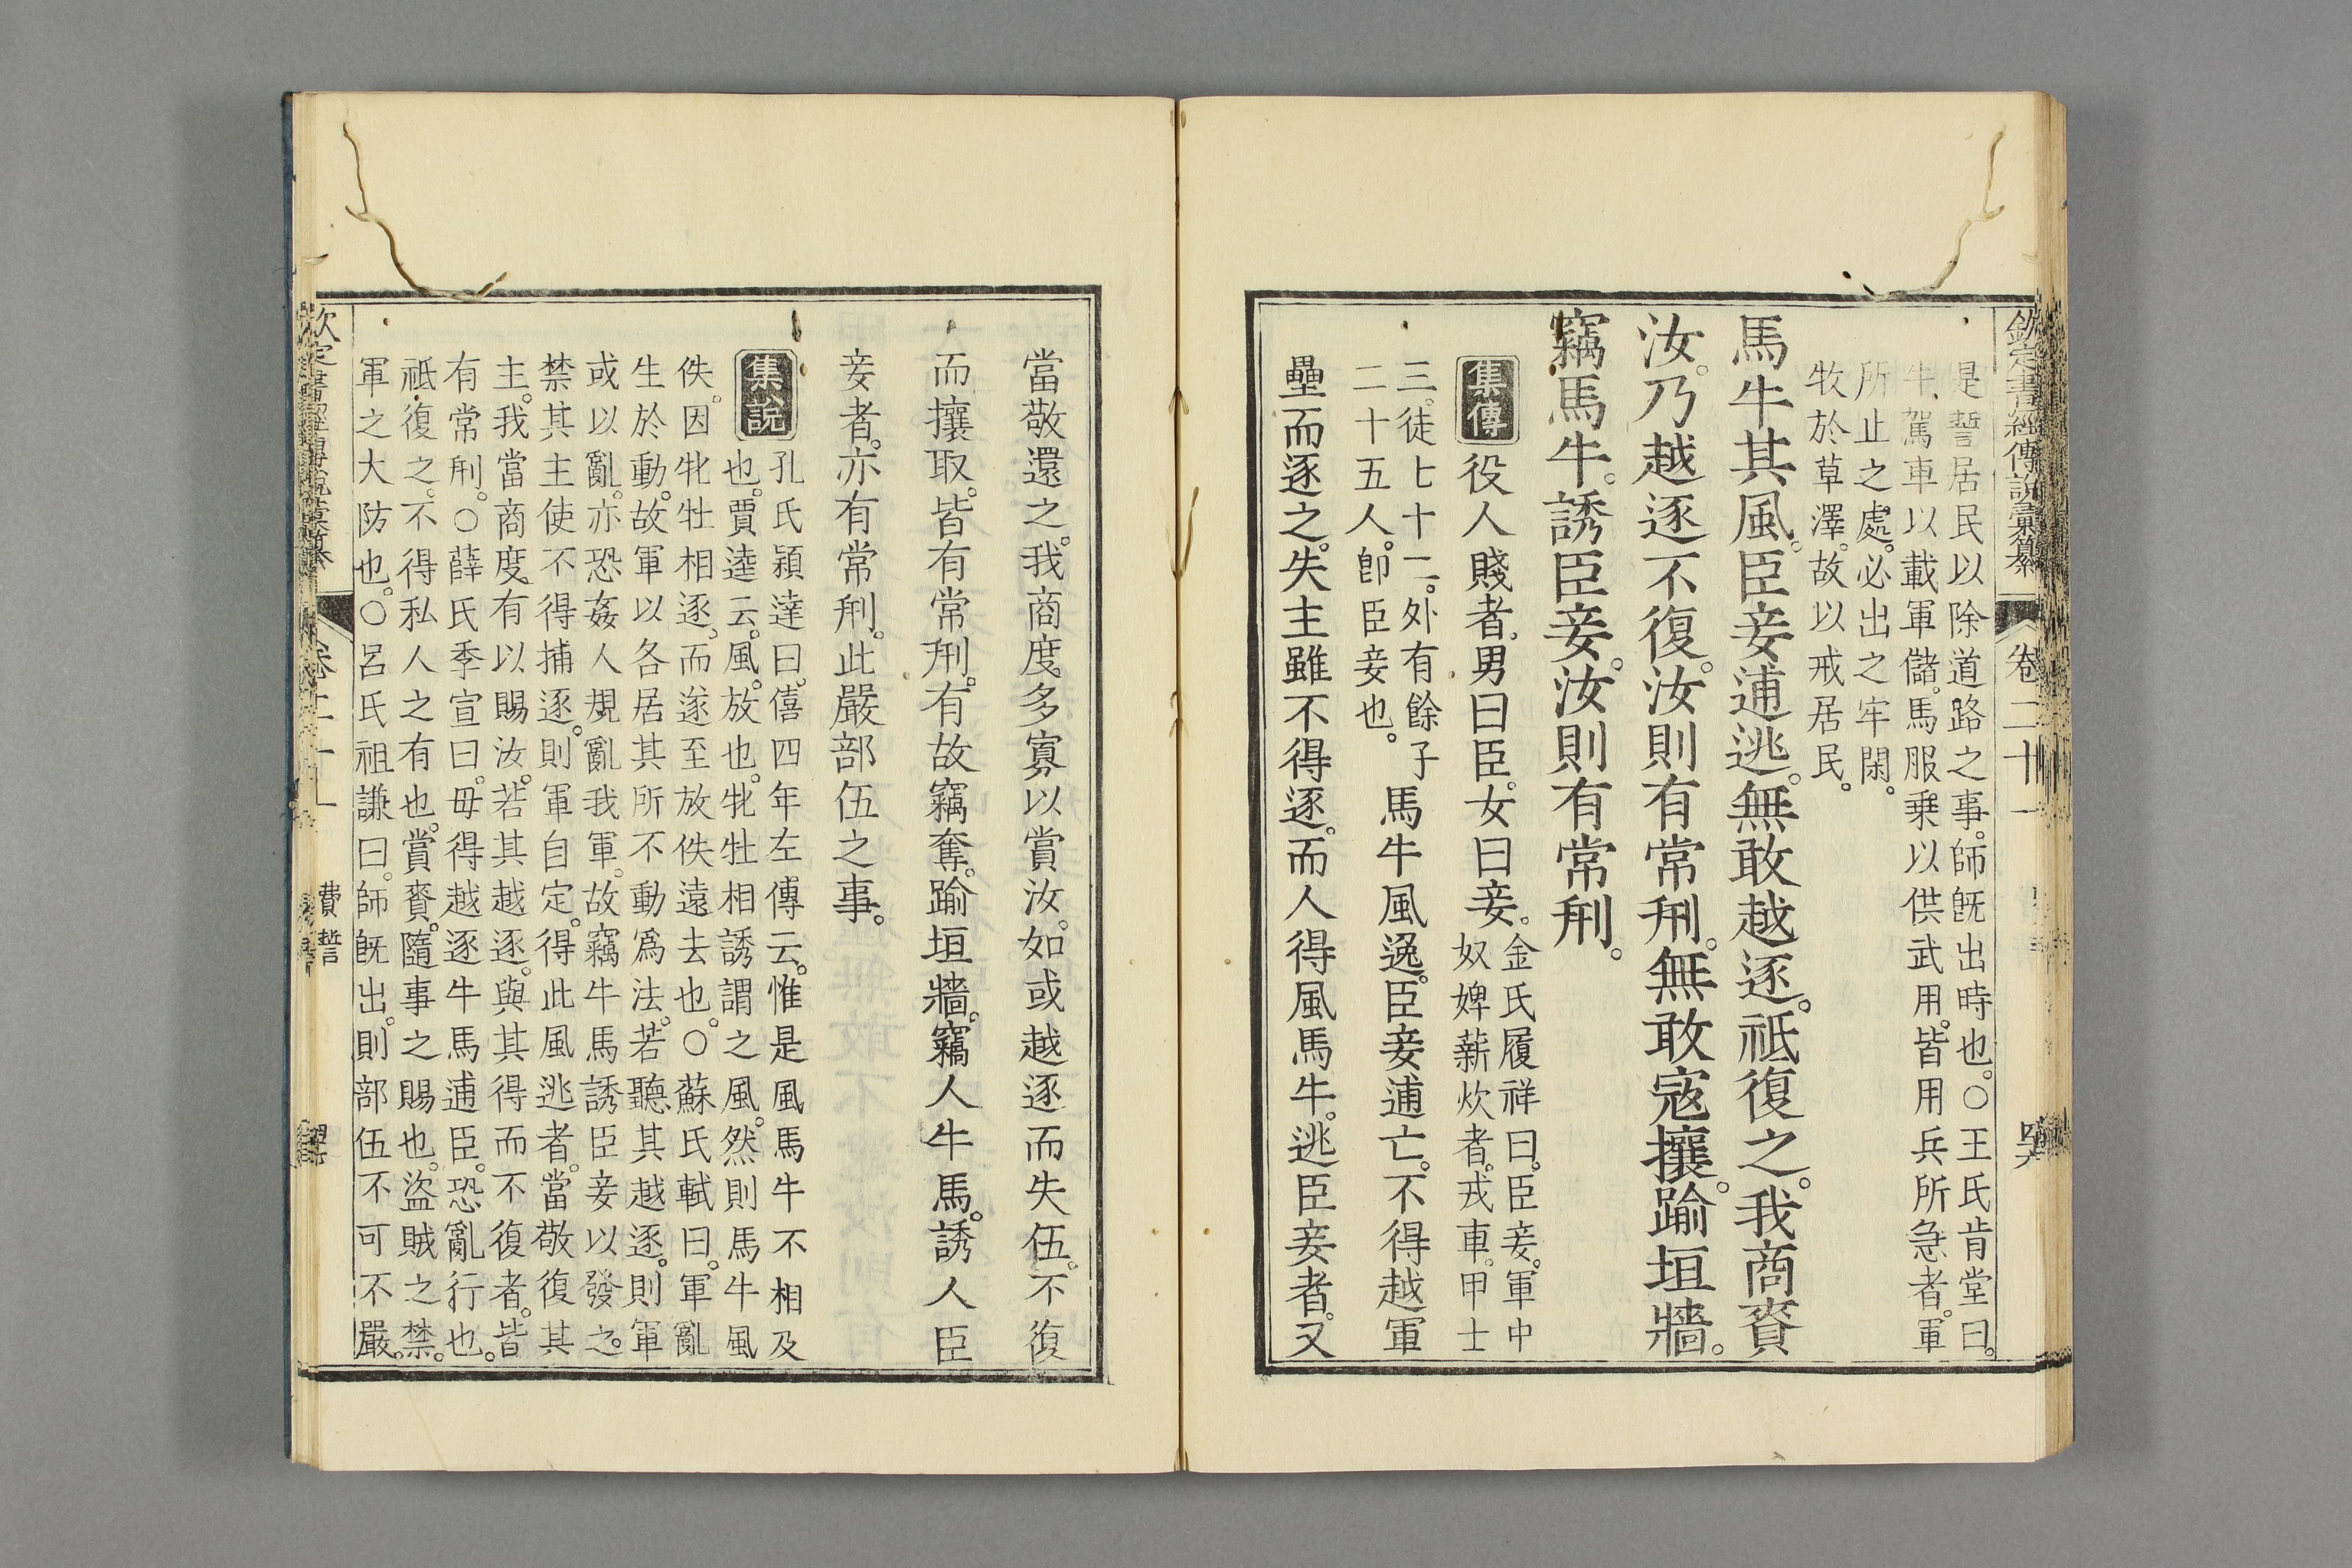 欽定書經傳說彙纂 卷二十一
是誓居民以除道路之事。師旣出時也。○王氏肯堂曰。
牛駕車以載軍儲。馬服乗以供武用。皆用兵所急者。軍
所止之處。必出之牢閑。
牧於草澤。故以戒居民。
馬牛其風。臣妾逋逃。無敢越逐。祗復之。我商賚
汝。乃越逐不復。汝則有常刑。無敢寇攘。踰垣牆。
竊馬牛。誘臣妾。汝則有常刑。
集傳 役人賤者。男曰臣。女曰妾。金氏履祥曰。臣妾。軍中
奴婢薪炊者。戎車。甲士
三。徒七十二。外有餘子
二十五人。卽臣妾也。馬牛風逸。臣妾逋亡。不得越軍
壘而逐之。失主雖不得逐。而人得風馬牛。逃臣妾者。又
當敬還之。我商度多寡以賞汝。如或越逐而失伍。不復
而攘取。皆有常刑。有故竊奪。踰垣牆。竊人牛馬。誘人臣
妾者。亦有常刑。此嚴部伍之事。
集說 孔氏穎達曰。僖四年左傳云。惟是風馬牛不相及
也。賈逵云。風。放也。牝牡相誘謂之風。然則馬牛風
佚。因牝牡相逐。而遂至放佚遠去也。○蘇氏軾曰。軍亂
生於動。故軍以各居其所不動爲法。若聽其越逐。則軍
或以亂。亦恐姦人規亂我軍。故竊牛馬誘臣妾以發之。
禁其主使不得捕逐。則軍自定。得此風逃者。當敬復其
主。我當商度。有以賜汝。若其越逐。與其得而不復者。皆
有常刑。○薛氏季宣曰。毋得越逐牛馬逋臣。恐亂行也。
祗復之。不得私人之有也。賞賚。隨事之賜也。盜賊之禁。
軍之大防也。○呂氏祖謙曰。師旣出。則部伍不可不嚴。
費誓